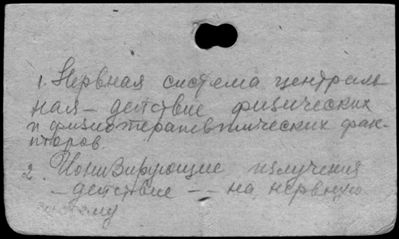 1. Нервная система централь-
ная – действие физических
и физиотерапевтических фак-
торов.
2. Ионизирующие излучения
– действие – – на нервную
систему